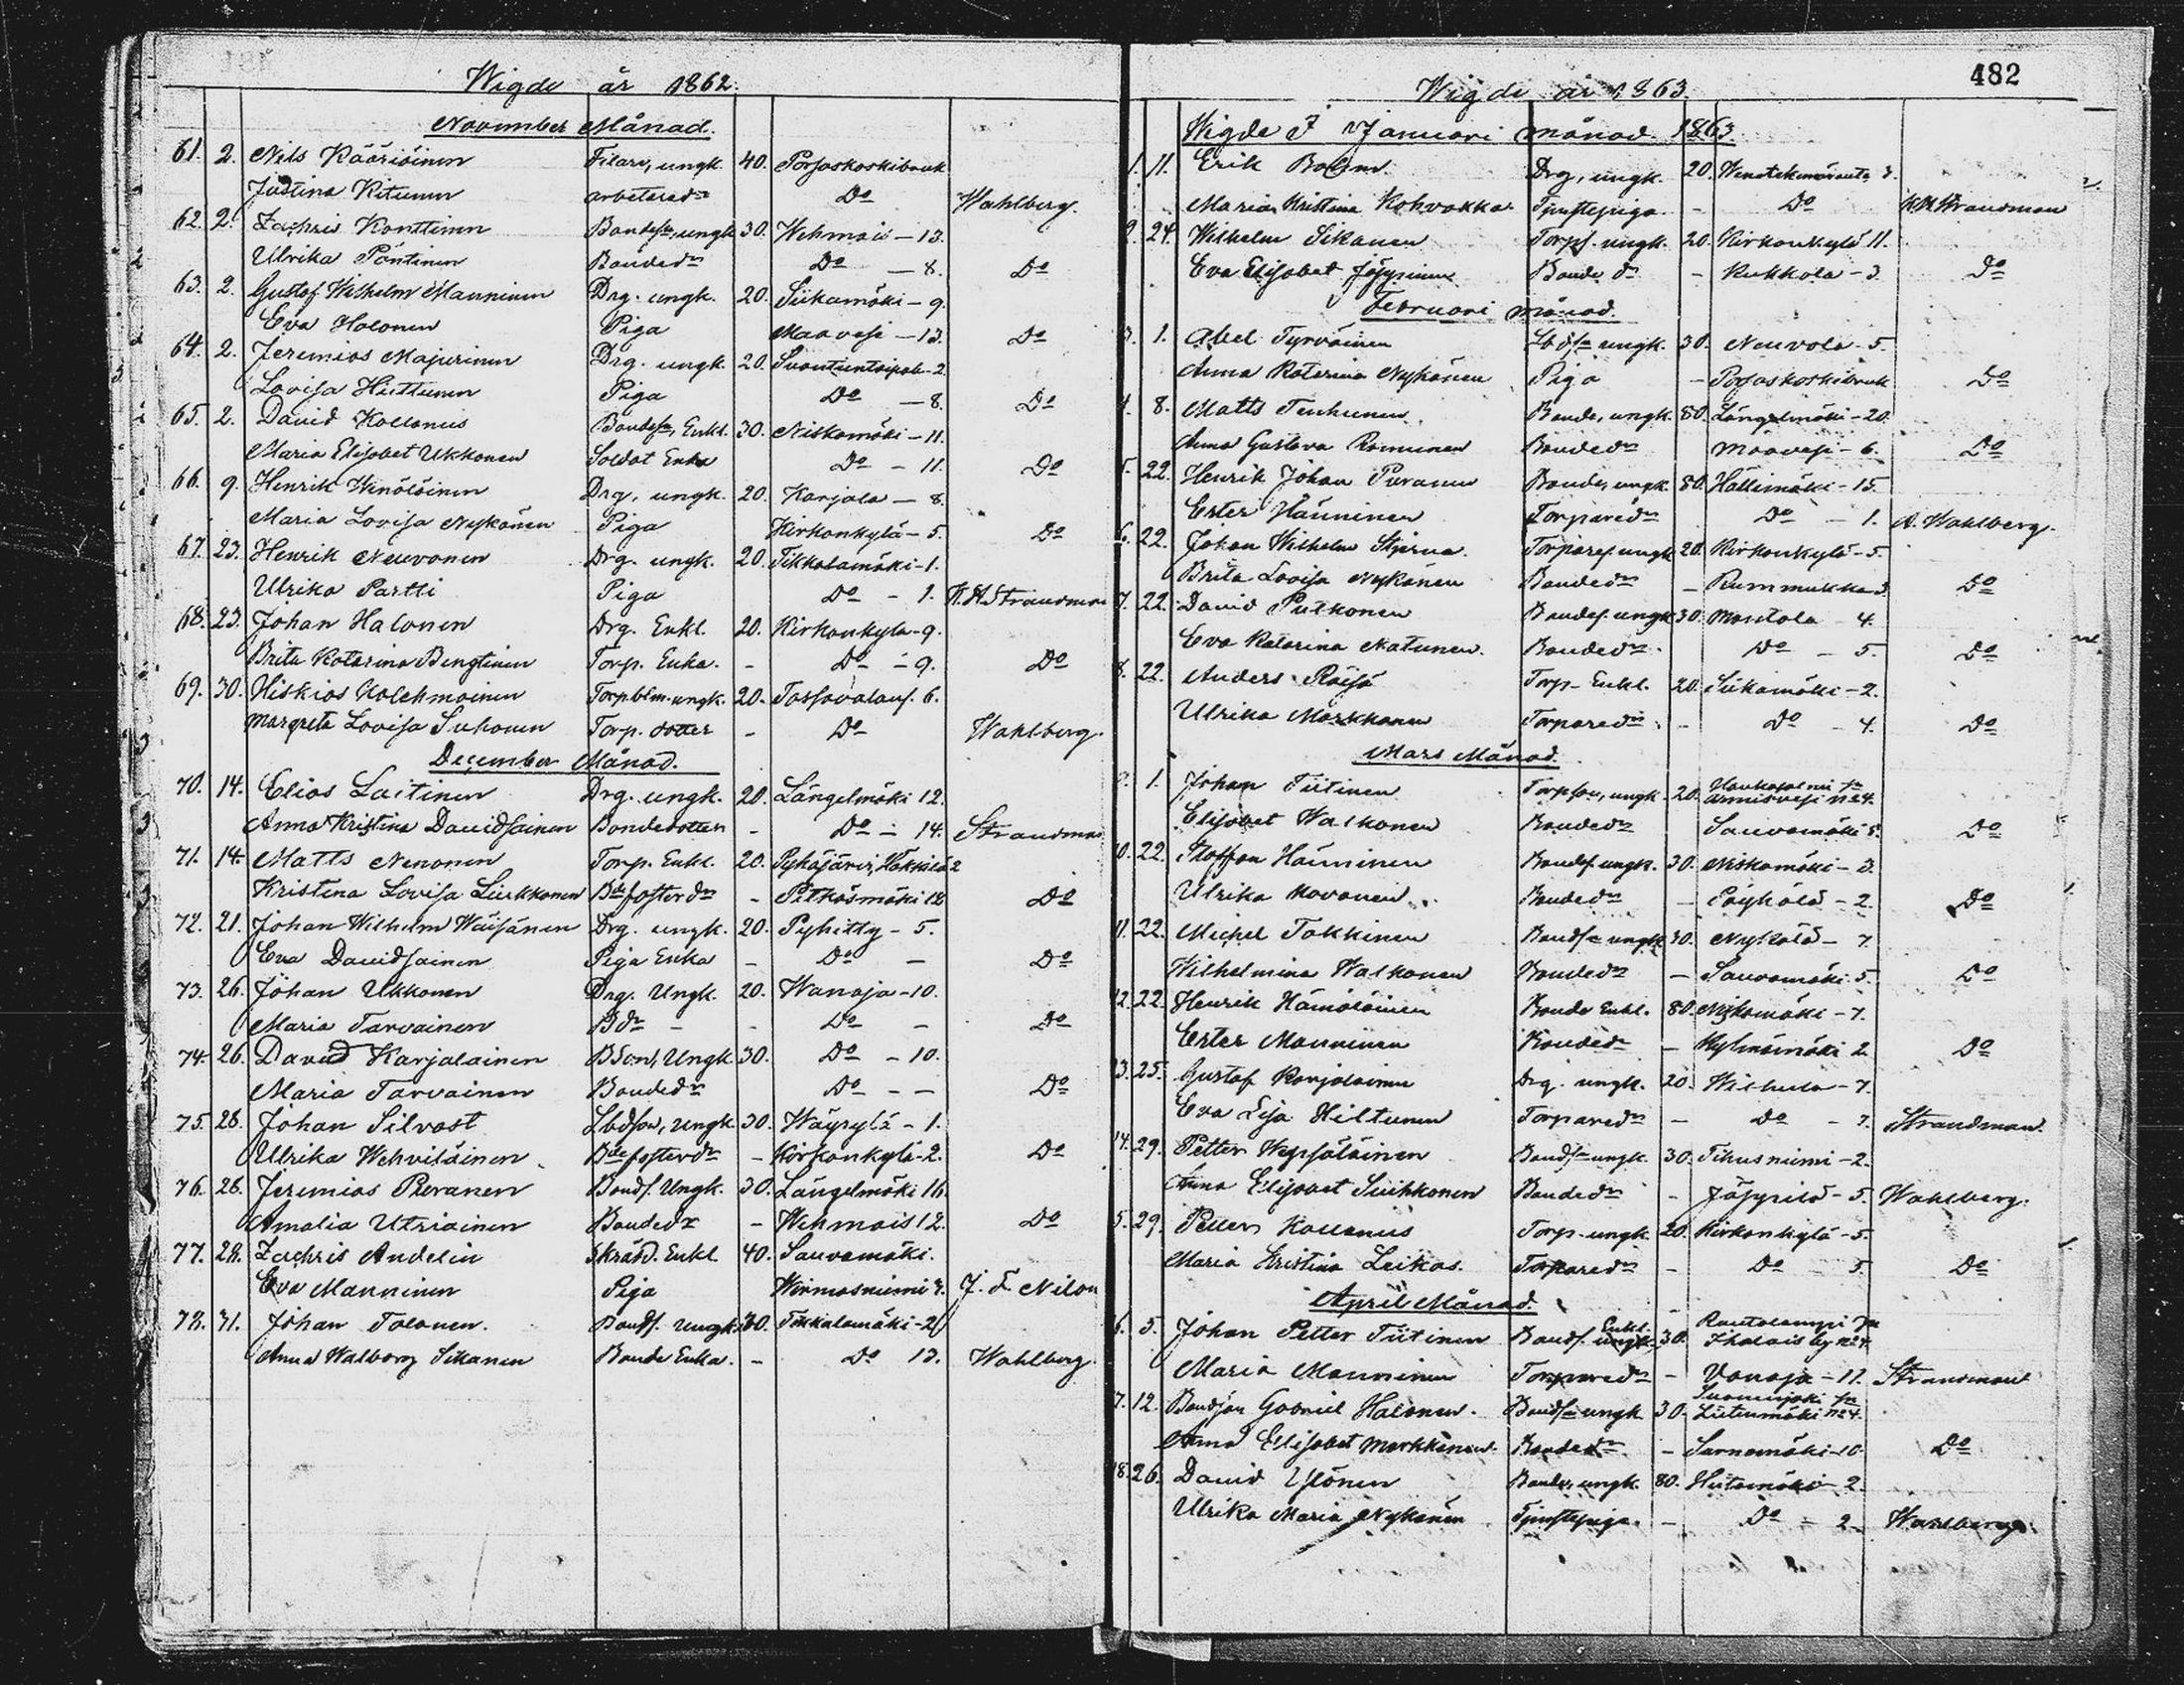 Wigde år 1862.
November Månad.
61. 2. Nils Kääriäinen Filare, ungk. 40. Porsaskoskibruk
Justina Kitunen arbetared:r Do Wahlberg.
62. 2. Zachris Konttinen Bondeson, ungk 30. Wehmais - 13.
Ulrika Pöntinen Bonded:r Do - 8. Do
63. 2. Gustaf Wilhelm Manninen Drg. ungk. 20. Siikamäki - 9.
Eva Halonen Piga Maavesi - 13. Do
64. 2. Jeremias Majurinen Drg. ungk. 20. Suontientaipale - 2.
Lovisa Hiettunen Piga Do - 8. Do
65. 2. David Kollanus Bondeson, Enkl. 30. Niskamäki - 11.
Maria Elisabet Ukkonen Soldat Enka Do - 11. Do
66. 9. Henrik Wenäläinen Drg. ungk. 20. Karjala - 8.
Maria Lovisa Nykänen Piga Kirkonkylä - 5. Do
67. 23. Henrik Neuvonen Drg. ungk. 20. Tikkalamäki - 1.
Ulrika Partti Piga Do - 1. K.H. Strandman
68. 23. Johan Halonen Drg. Enkl. 20. Kirkonkylä - 9.
Brita Katarina Bengtinen Torp. Enka. - Do - 9. Do
69. 30. Hiskias Kolehmainen Torp. ungk. 20. 6.
Margreta Lovisa Suhonen Torp. dotter - Do Wahlberg.
December Månad.
70. 14. Elias Laitinen Drg. ungk. 20. Längelmäki 12.
Anna Kristina Davidsainen Bondedotter - Do - 14. Strandman
71. 14. Matts Nenonen Torp. Enkl. 20. Pyhäjärvi, Häkkilä 2
Kristina Lovisa Liukkonen Bde fosterdr - Pitkäsmäki 12 Do
72. 21. Johan Wilhelm Wäisänen Drg. ungk. 20. Pyhitty - 5.
Eva Davidsainen Piga Enka - Do - Do
73. 26. Johan Ukkonen Drg. Ungk. 20. Wanaja - 10.
Maria Tarvainen Bdr - - Do - Do
74. 26. David Karjalainen Bson, Ungk 30. Do - 10.
Maria Tarvainen Bondedr Do - - Do
75. 26. Johan Silvast Lbdson, Ungk 30. Wäyrylä - 1.
Ulrika Wehviläinen Bde fosterdr - Kirkonkylä - 2. Do
76. 26. Jeremias Pieranen Bonds. Ungk. 30. Längelmäki 16.
Amalia Utriainen Bondedr - Wehmais 12. Do
77. 28. Zachris Andelin Skrädd. Enkl. 40. Sauvamäki.
Eva Manninen Piga Wirmasniemi 3. J. F. Nilon
78. 31. Johan Tolonen. Bonds. Ungk. 30. Tikkalamäki - 2
Anna Walborg Sikanen Bonde Enka. - Do 13. Wahlberg.
482
Wigde år 1863.
Wigde I Januari månad 1863.
1. 11. Erik Drg, ungk. 20. 3.
Maria Kristina Kohvakka Tjenstepiga - Do K.H. Strandman
2. 24. Wilhelm Sikanen Torps. ungk. 20. Kirkonkylä 11.
Eva Elisabet Jäppinen Bonde dr - Kukkola - 3. Do
Februari månad.
3. 1. Abel Tyrväinen Lbdson ungk. 30. Neuvola - 5.
Anna Katarina Nykänen Piga - Porsaskoskibruk Do
4. 8. Matts Tenhunen Bonde, ungk. 80. Längelmäki - 20.
Anna Gustava Romunen Bondedr Maavesi - 6. Do
5. 22. Henrik Johan Puranen Bonde, ungk. 80. Hällimäki - 15.
Ester Hänninen Torparedr Do - 1. A. Wahlberg.
6. 22. Johan Wilhelm Stjerna Torpares. ungk 20. Kirkonkylä - 5.
Brita Lovisa Nykänen Bondedr - Rummukka 3. Do
7. 22. David Pulkonen Bondes. ungk 30. Montola - 4.
Eva Katarina Natunen. Bondedr Do - 5. Do
8. 22. Anders Räisä Torp. Enkl. 20. Siikamäki - 2.
Ulrika Markkanen Torparedr - Do - 4. Do
Mars Månad.
9. 1. Johan Tiitinen Torpson, ungk. 20. Hankasalmi sn Armisvesi No 4.
Elisabet Walkonen Bondedr Sauvamäki 5. Do
10. 22. Staffan Hänninen Bondes. ungk. 30. Niskamäki - 3.
Ulrika Kovanen Bondedr - Pöyhölä - 2. Do
11. 22. Michel Takkinen Bondson ungk 30. Nykälä - 7.
Wilhelmina Walkonen Bondedr - Sauvamäki 5. Do
12. 22. Henrik Hämäläinen Bonde Enkl. 80. Niskamäki - 7.
Ester Manninen Bondedr - Kylmämäki 2. Do
13. 25. Gustaf Karjalainen Drg. ungk. 20. Wilhula - 7.
Eva Lisa Hiltunen Torparedr - Do - 7. Strandman.
14. 29. Petter Wepsäläinen Bondson ungk. 30. Tihusniemi - 2.
Anna Elisabet Siihkonen Bondedr - Jäppilä - 5. Wahlberg.
15. 29. Petter Kollanus Torp. ungk. 20. Kirkonkylä - 5.
Maria Kristina Leikas. Torparedr - Do 5. Do
April Månad.
16. 5. Johan Petter Tiitinen Bonds. Enkl. 30. Rautalampi sn by No 4.
Maria Manninen Torparedr - Vanaja - 11. Strandman
17. 12. Bondson Gabriel Halonen. Bondson ungk 30. Suonenjoki sn Lietenmäki No 4.
Anna Elisabet Markkanen. Bondedr - Sarnamäki - 10. Do
18. 26. David Ylönen Bonde, ungk. 80. Hietamäki - 2.
Ulrika Maria Nykänen Tjenstepiga. - Do - 2. Wahlberg.